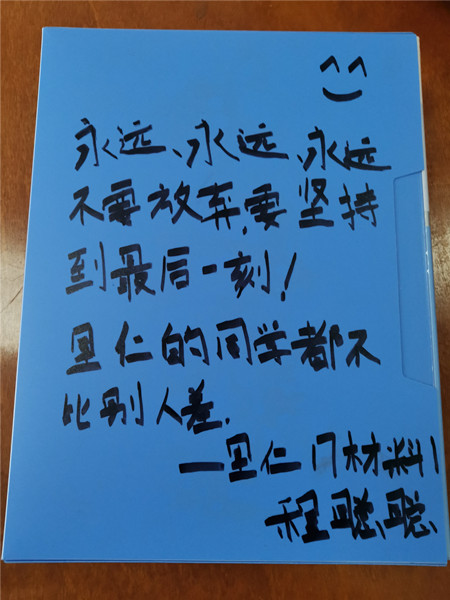 永远、永远、永远
不要放弃,要坚持
到最后一刻!
里仁的同学都不
比别人差.
—里仁17材料1
程聪聪